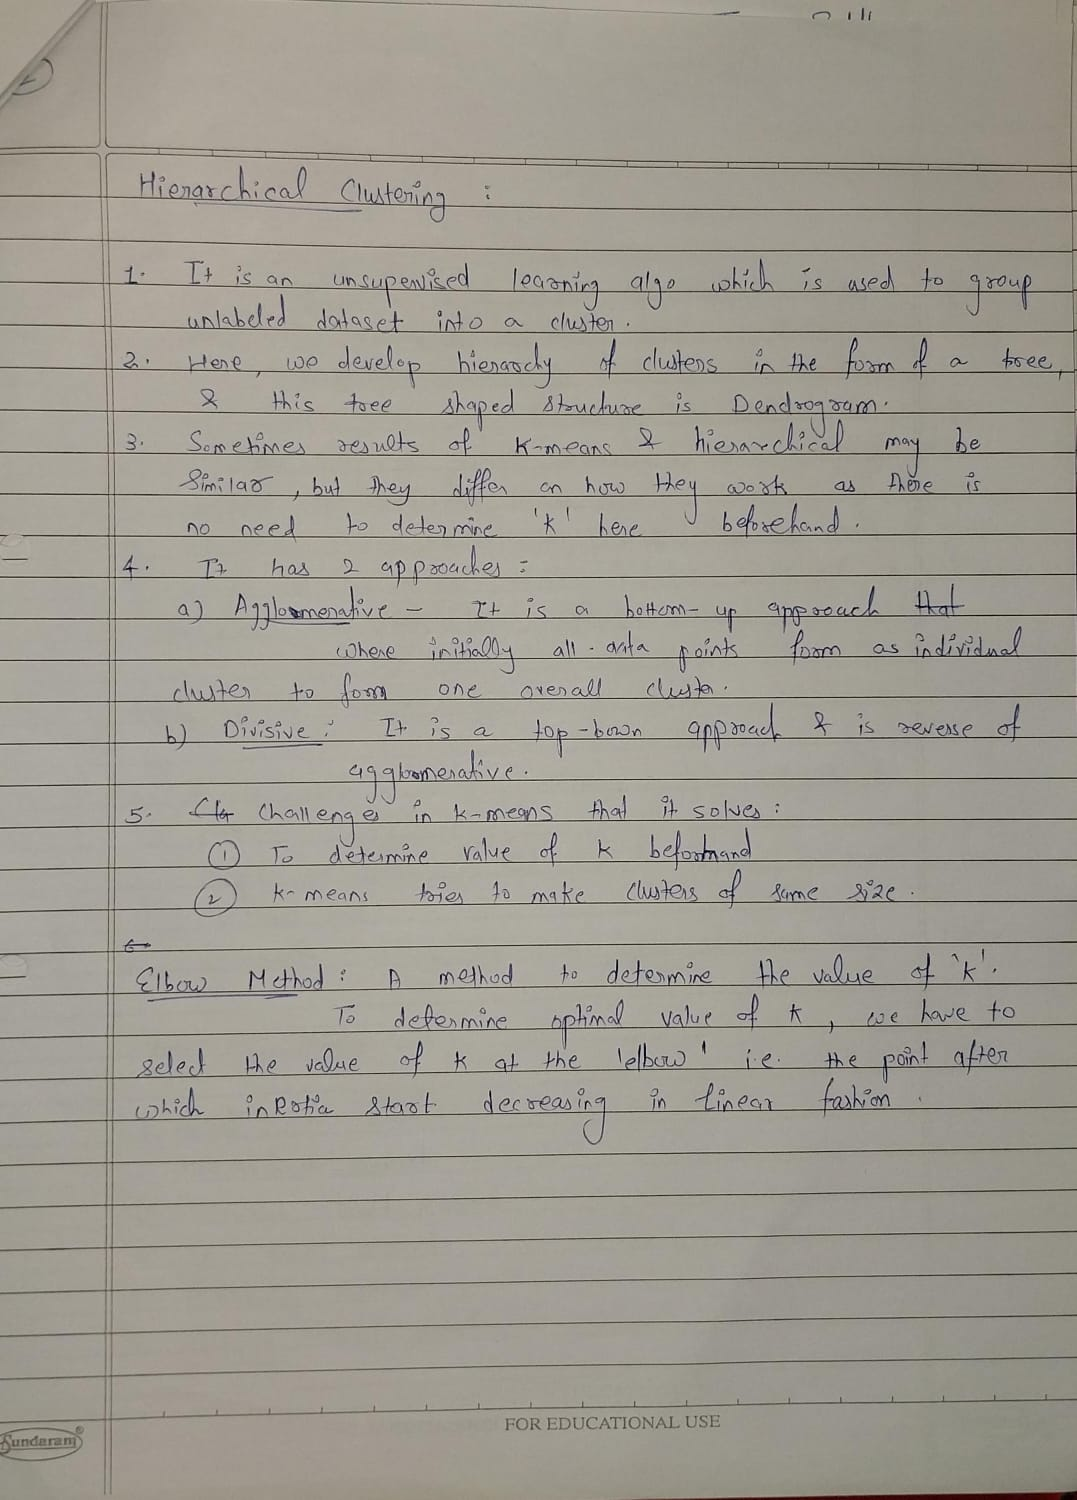 Hierarchical Clustering :
1. It is an unsupervised learning algo which is used to group
unlabeled dataset into a cluster.
2. Here, we develop hierarchy of clusters in the form of a tree,
& this tree shaped structure is Dendrogram.
3. Sometimes results of K-means & hierarchical may be
similar, but they differ on how they work as there is
no need to determine 'K' here beforehand.
4. It has 2 approaches :
a) Agglomerative - It is a bottom-up approach that
where initially all data points form as individual
cluster to form one overall cluster.
b) Divisive : It is a top-bown approach & is reverse of
agglomerative.
5. Challenges in k-means that it solves :
① To determine value of k beforehand
② K-means tries to make clusters of same size.
Elbow Method : A method to determine the value of 'k'.
To determine optimal value of k, we have to
select the value of k at the 'elbow' i.e. the point after
which inRotia start decreasing in linear fashion.
FOR EDUCATIONAL USE
Sundaram®